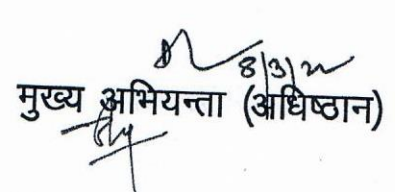 8/3/22
मुख्य अभियन्ता (अधिष्ठान)